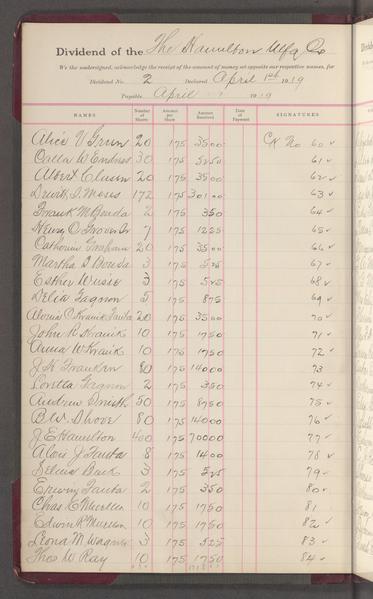 Dividend of the The Hamilton Mfg Co
We the undersigned, acknowledge the receipt of the amount of money set opposite our respective names, for
Dividend No. 2 Declared April 1st 1919
Payable April 1919
NAMES Number of Shares Amount per Share Amount Received Date of Payment SIGNATURES
Alice V Green 20 175 3500 CK No 60 ✓
Calla W 30 175 5250 61 ✓
Albert Clusen 20 175 3500 62 ✓
J. Moses 172 175 301 00 63 ✓
Frank M 2 175 350 64 ✓
Henry O Grover Jr 7 175 1225 65 ✓
Catherine Graham 20 175 3500 66 ✓
Martha 3 175 525 67 ✓
Esther 3 175 525 68 ✓
Delia Gagnon 5 175 875 69 ✓
20 175 3500 70 ✓
John R 10 175 1750 71 ✓
Anna W 10 175 1750 72 ✓
J. K. 80 175 14000 73
Loretta Gagnon 2 175 350 74 ✓
Andrew Smith 50 175 8750 75 ✓
B.W. Shove 80 175 14000 76 ✓
J E Hamilton 400 175 70000 77 ✓
Alois J Tauta 8 175 1400 78 ✓
Selma Back 3 175 525 79 ✓
Erwin Tauta 2 175 350 80 ✓
Chas E Mueller 10 175 1750 81
Edwin R Mueller 10 175 1750 82 ✓
Leona M Wagner 3 175 525 83 ✓
Thos W Ray 10 175 1750 84 ✓